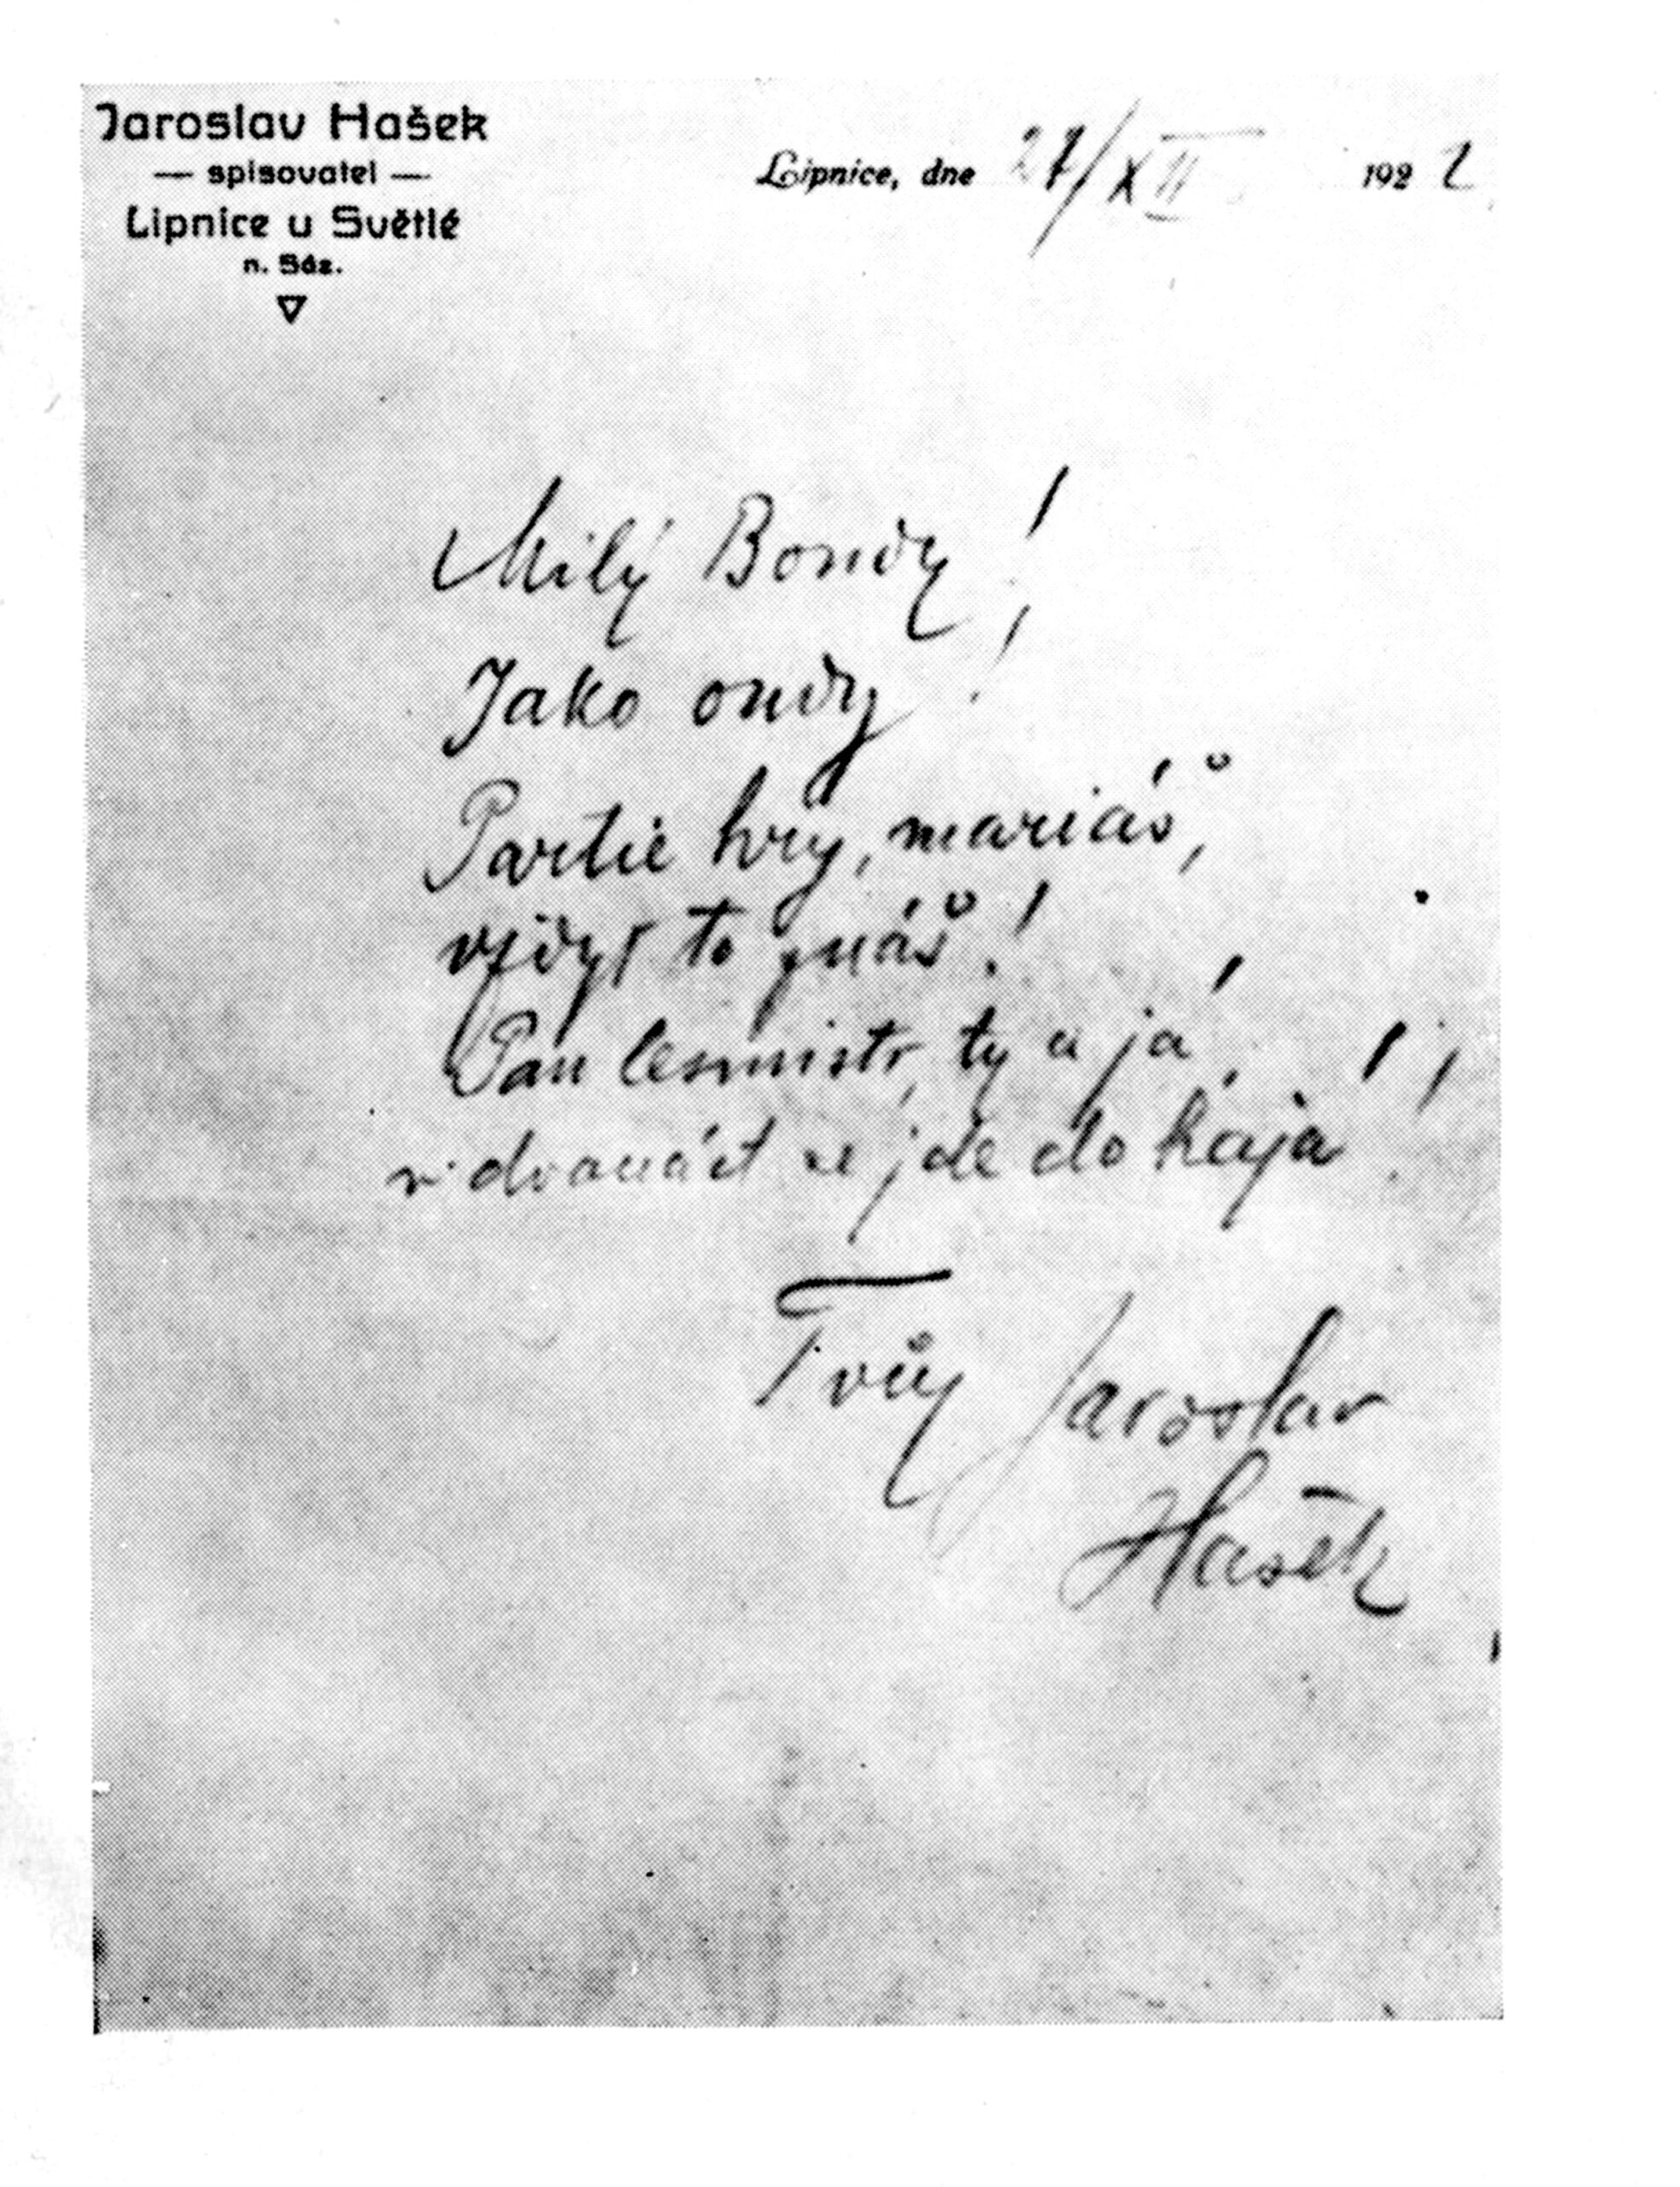 Jaroslav Hašek
— spisovatel —
Lipnice u Světlé
n. Sáz.
Lipnice, dne 27/XII 1922
Milý Bondy!
Jako ondy!
Partie hry, mariáš,
vždyť to znáš!
Pan lesmistr, ty a já,
v dvanáct se jde do hajá!
Tvůj Jaroslav
Hašek